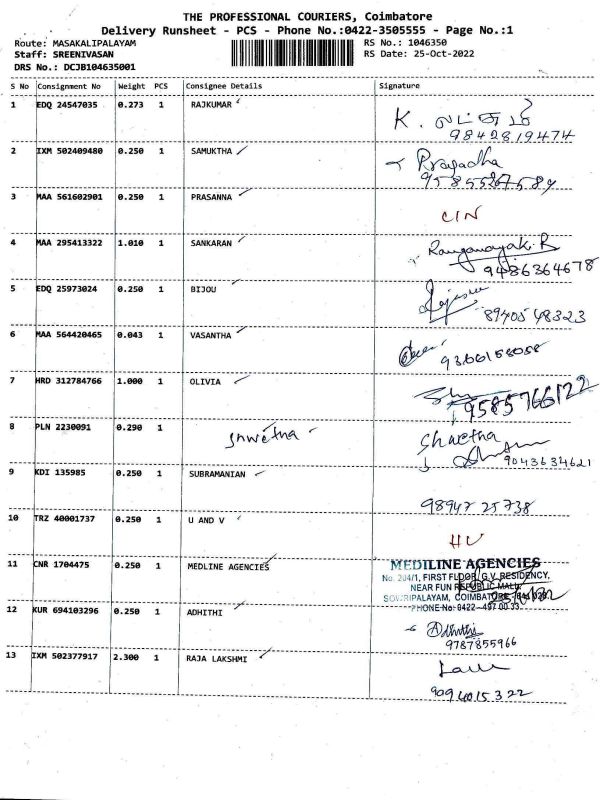 THE PROFESSIONAL COURIERS, Coimbatore
Delivery Runsheet - PCS - Phone No.:0422-3505555 - Page No.:1
Route: MASAKALIPALAYAM RS No.: 1046350
Staff: SREENIVASAN RS Date: 25-Oct-2022
DRS No.: DCJB104635001
S No Consignment No Weight PCS Consignee Details Signature
1 EDQ 24547035 0.273 1 RAJKUMAR K.
9842819474
2 IXM 502409480 0.250 1 SAMUKTHA Pragadha
3 MAA 561602901 0.250 1 PRASANNA CIN
4 MAA 295413322 1.010 1 SANKARAN Ranganayaki.R
9486364678
5 EDQ 25973024 0.250 1 BIJOU
8940548323
6 MAA 564420465 0.043 1 VASANTHA
7 HRD 312784766 1.000 1 OLIVIA
9585766122
8 PLN 2230091 0.290 1 Shwetha Shwetha
9043634621
9 KDI 135985 0.250 1 SUBRAMANIAN
9894725738
10 TRZ 40001737 0.250 1 U AND V HU
11 CNR 1704475 0.250 1 MEDLINE AGENCIES MEDILINE AGENCIES
No. 204/1, FIRST FLOOR, G.V. RESIDENCY,
NEAR FUN REPUBLIC MALL,
SOWRIPALAYAM, COIMBATORE
PHONE No: 0422-497 00 33
12 KUR 694103296 0.250 1 ADHITHI Adhithi
9787855966
13 IXM 502377917 2.300 1 RAJA LAKSHMI
9094015322